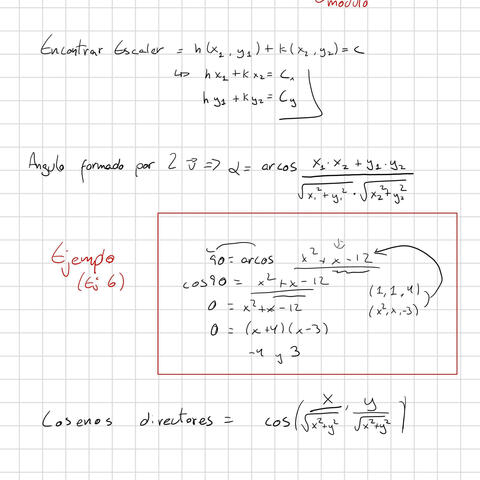 módulo
Encontrar Escaler = h(x₁, y₁) + k(x₂, y₂) = c
↳ hx₁ + kx₂ = Cₓ
hy₁ + ky₂ = Cy
Angulo formado por 2 v⃗ => α = arcos (x₁·x₂ + y₁·y₂) / (√(x₁²+y₁²) · √(x₂²+y₂²))
Ejemplo
(Ej 6)
90 = arcos x² + x - 12
cos 90 = x² + x - 12
(1, 1, 4)
0 = x² + x - 12
(x², x, -3)
0 = (x+4)(x-3)
-4 y 3
Cosenos directores = cos(x/√(x²+y²), y/√(x²+y²))